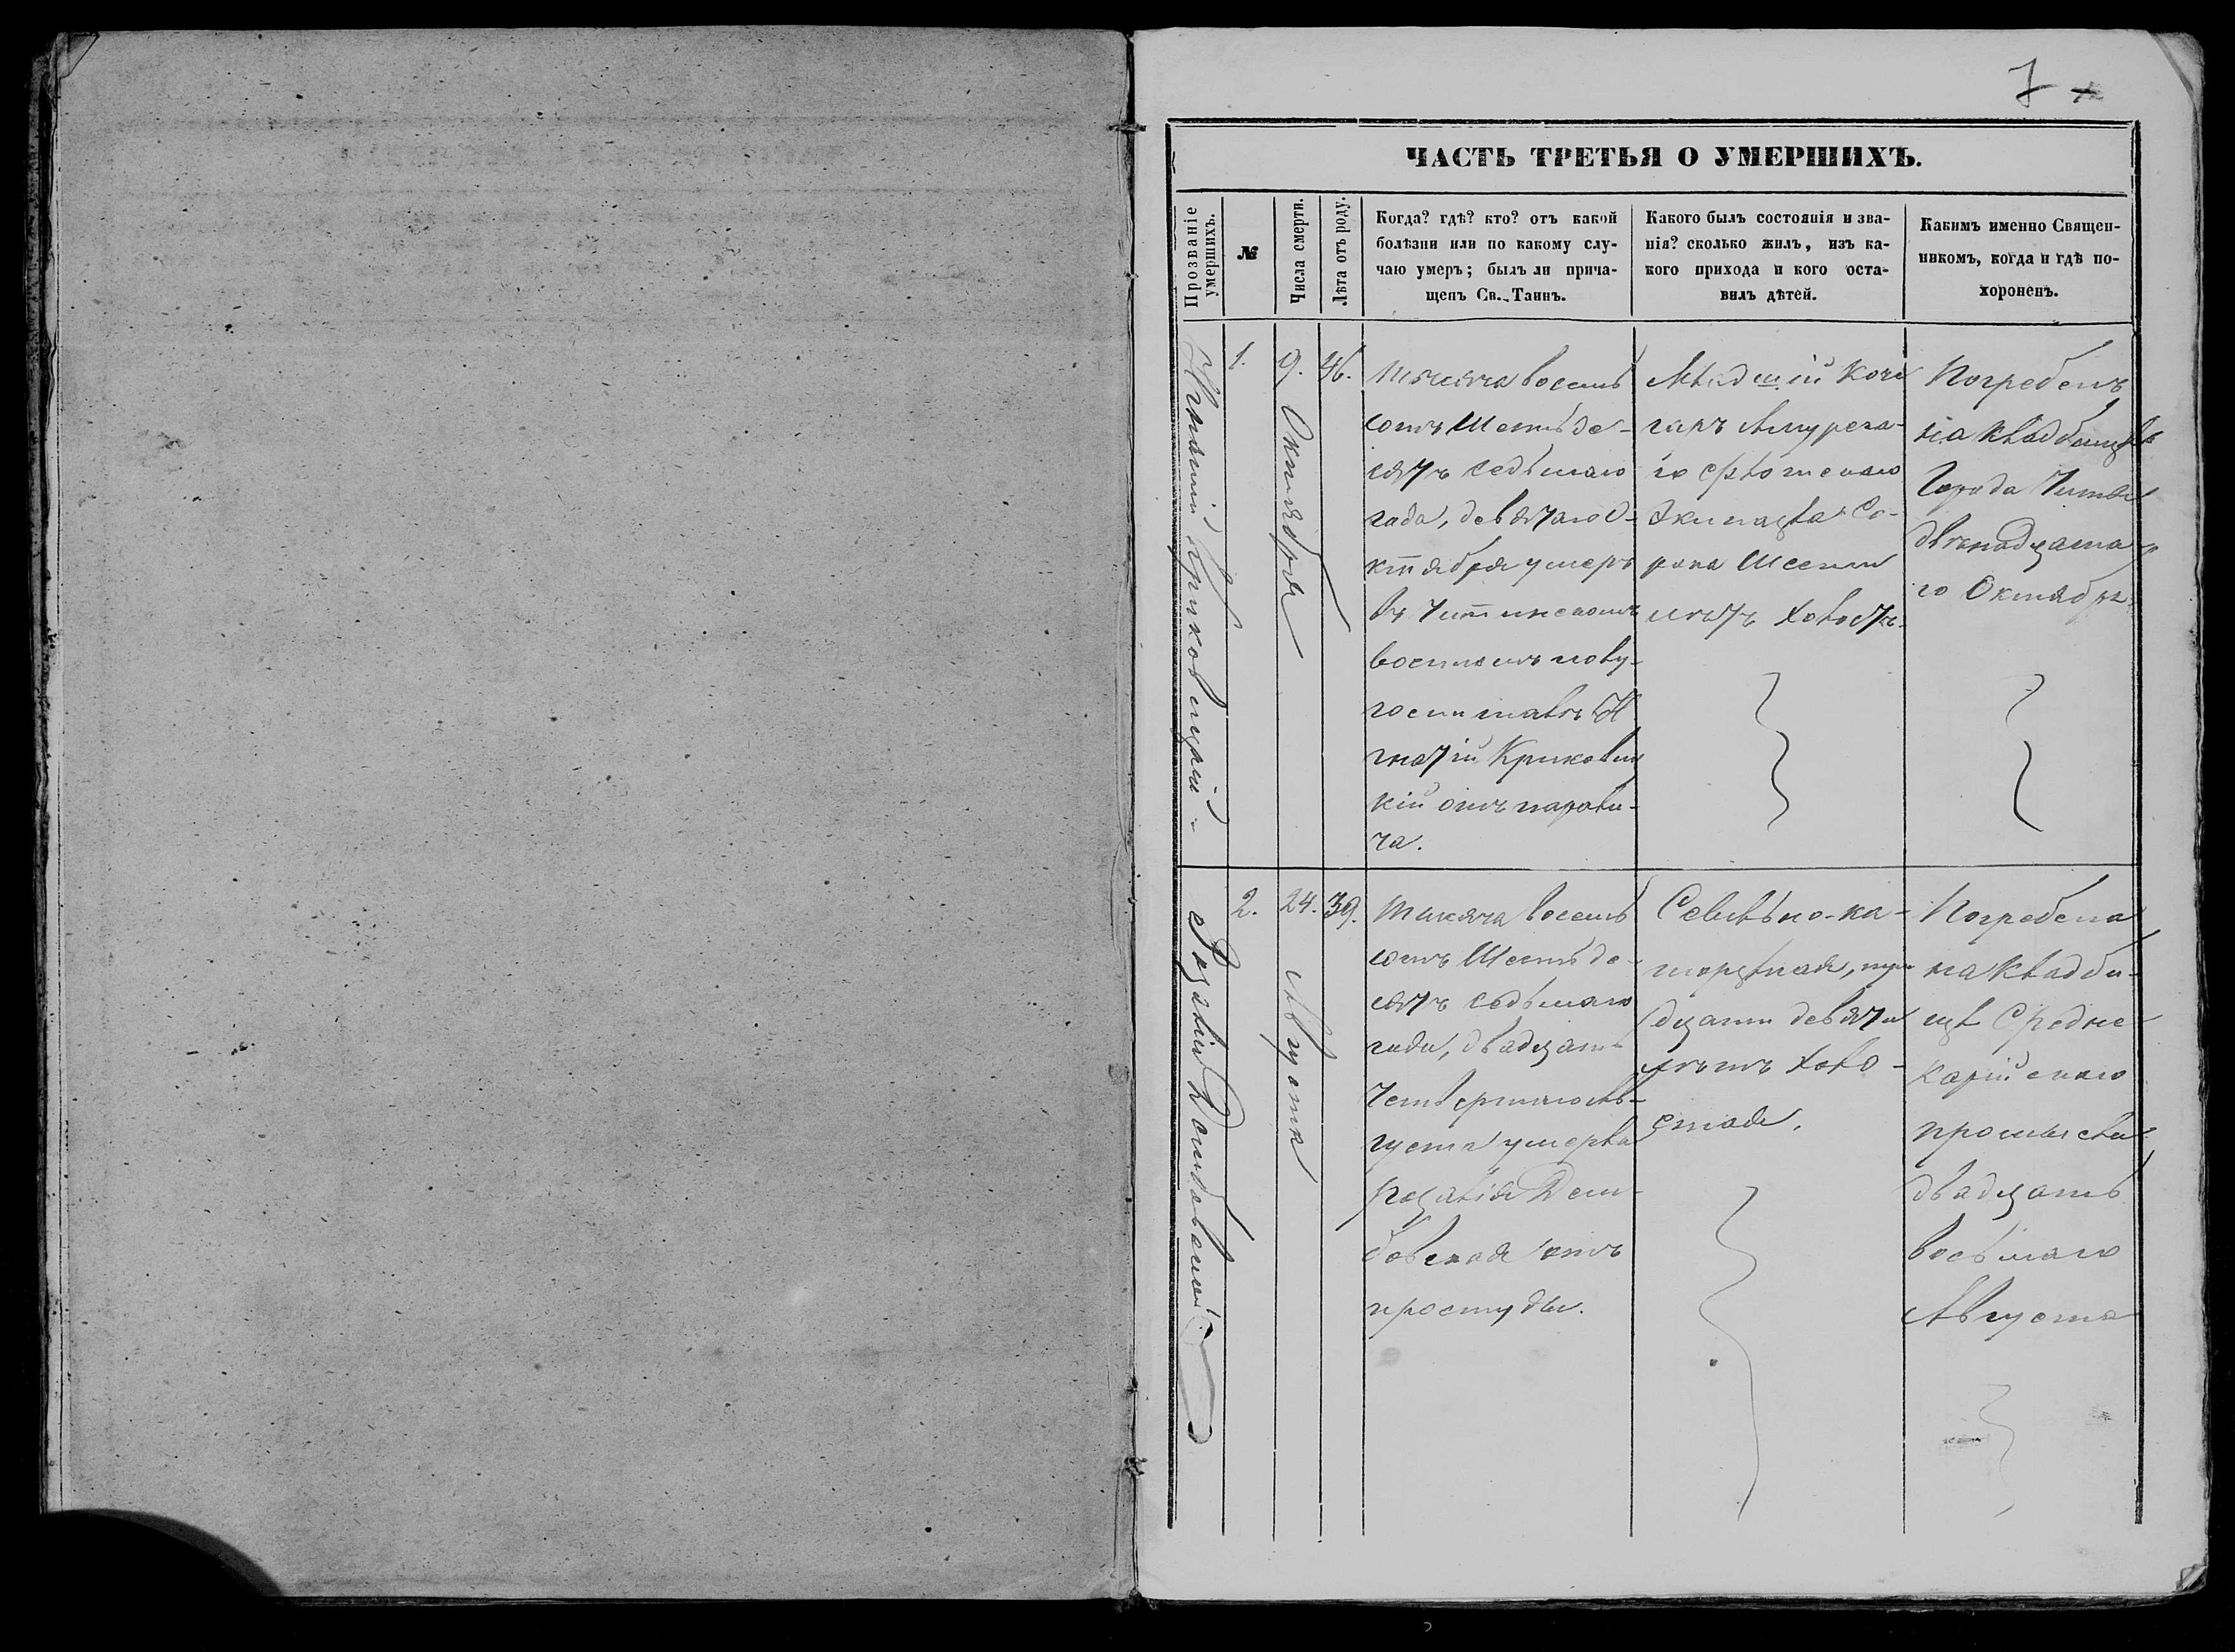 7
ЧАСТЬ ТРЕТЬЯ О УМЕРШИХЪ.
Прозваніе умершихъ.
№
Числа смерти.
Лѣта отъ роду.
Когда? гдѣ? кто? отъ какой
болѣзни или по какому слу-
чаю умеръ; былъ ли прича-
щенъ Св. Таинъ.
Какого былъ состоянія и зва-
нія? сколько жилъ, изъ ка-
кого прихода и кого оста-
вилъ дѣтей.
Какимъ именно Священ-
никомъ, когда и гдѣ по-
хороненъ.
Игнатій Криковицкій
1.
9. Октября
46.
Тысяча восемь
сотъ шестьде-
сятъ седьмаго
года, девятаго О-
ктября умеръ
въ Читинскомъ
госпиталѣ И
гнатій Криковиц
кій отъ парали-
ча.
Младшій коче
гаръ Амурска-
го флотскаго
Экипажа Со-
рока шести
лѣтъ холостъ.
Погребенъ
на кладбищѣ
Города Читы
двѣнадцата
го Октября
Розалія Домбовская
2.
24. Августа
39.
Тысяча восемь
сотъ шестьде-
сятъ седьмаго
года, двадцать
четвертаго Ав-
густа умерла
Розалія Дом-
бовская отъ
простуды.
Сельно-ка-
торжная, три
дцати девяти
лѣтъ холо-
стая.
Погребена
на кладби-
щѣ Средне
Карійскаго
промысла
двадцать
восьмаго
Августа